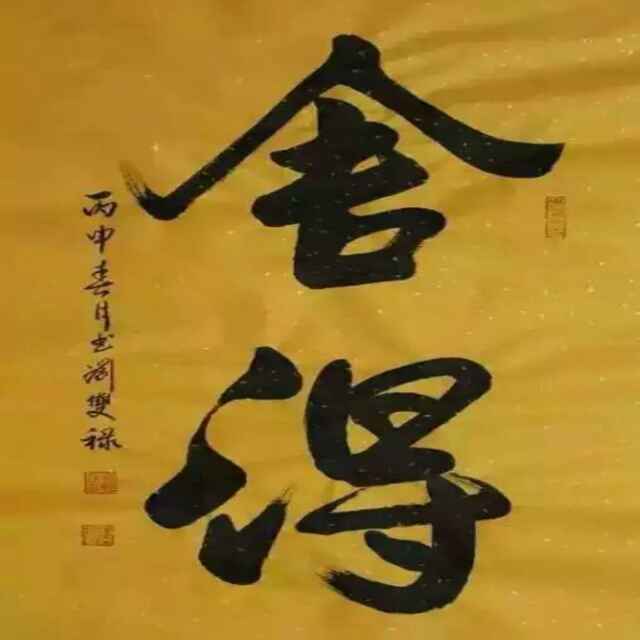 舍得
丙申春月书刘双禄